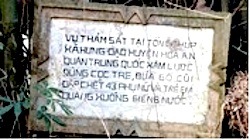 VỤ THẢM SÁT TẠI TỔNG CHÚP
XÃ HƯNG ĐẠO HUYỆN HÒA AN
QUÂN TRUNG QUỐC XÂM LƯỢC
DÙNG CỌC TRE, BÚA BỔ CỦI
ĐẬP CHẾT 43 PHỤ NỮ VÀ TRẺ EM
QUẲNG XUỐNG GIẾNG NƯỚC